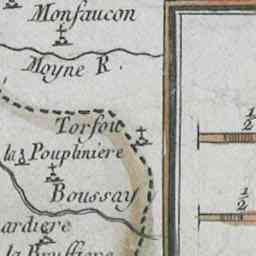 Monfaucon
Moyne R.
Torfou
la Poupliniere
Boussay
ardiere
la Bruffiere
1/2
1/2